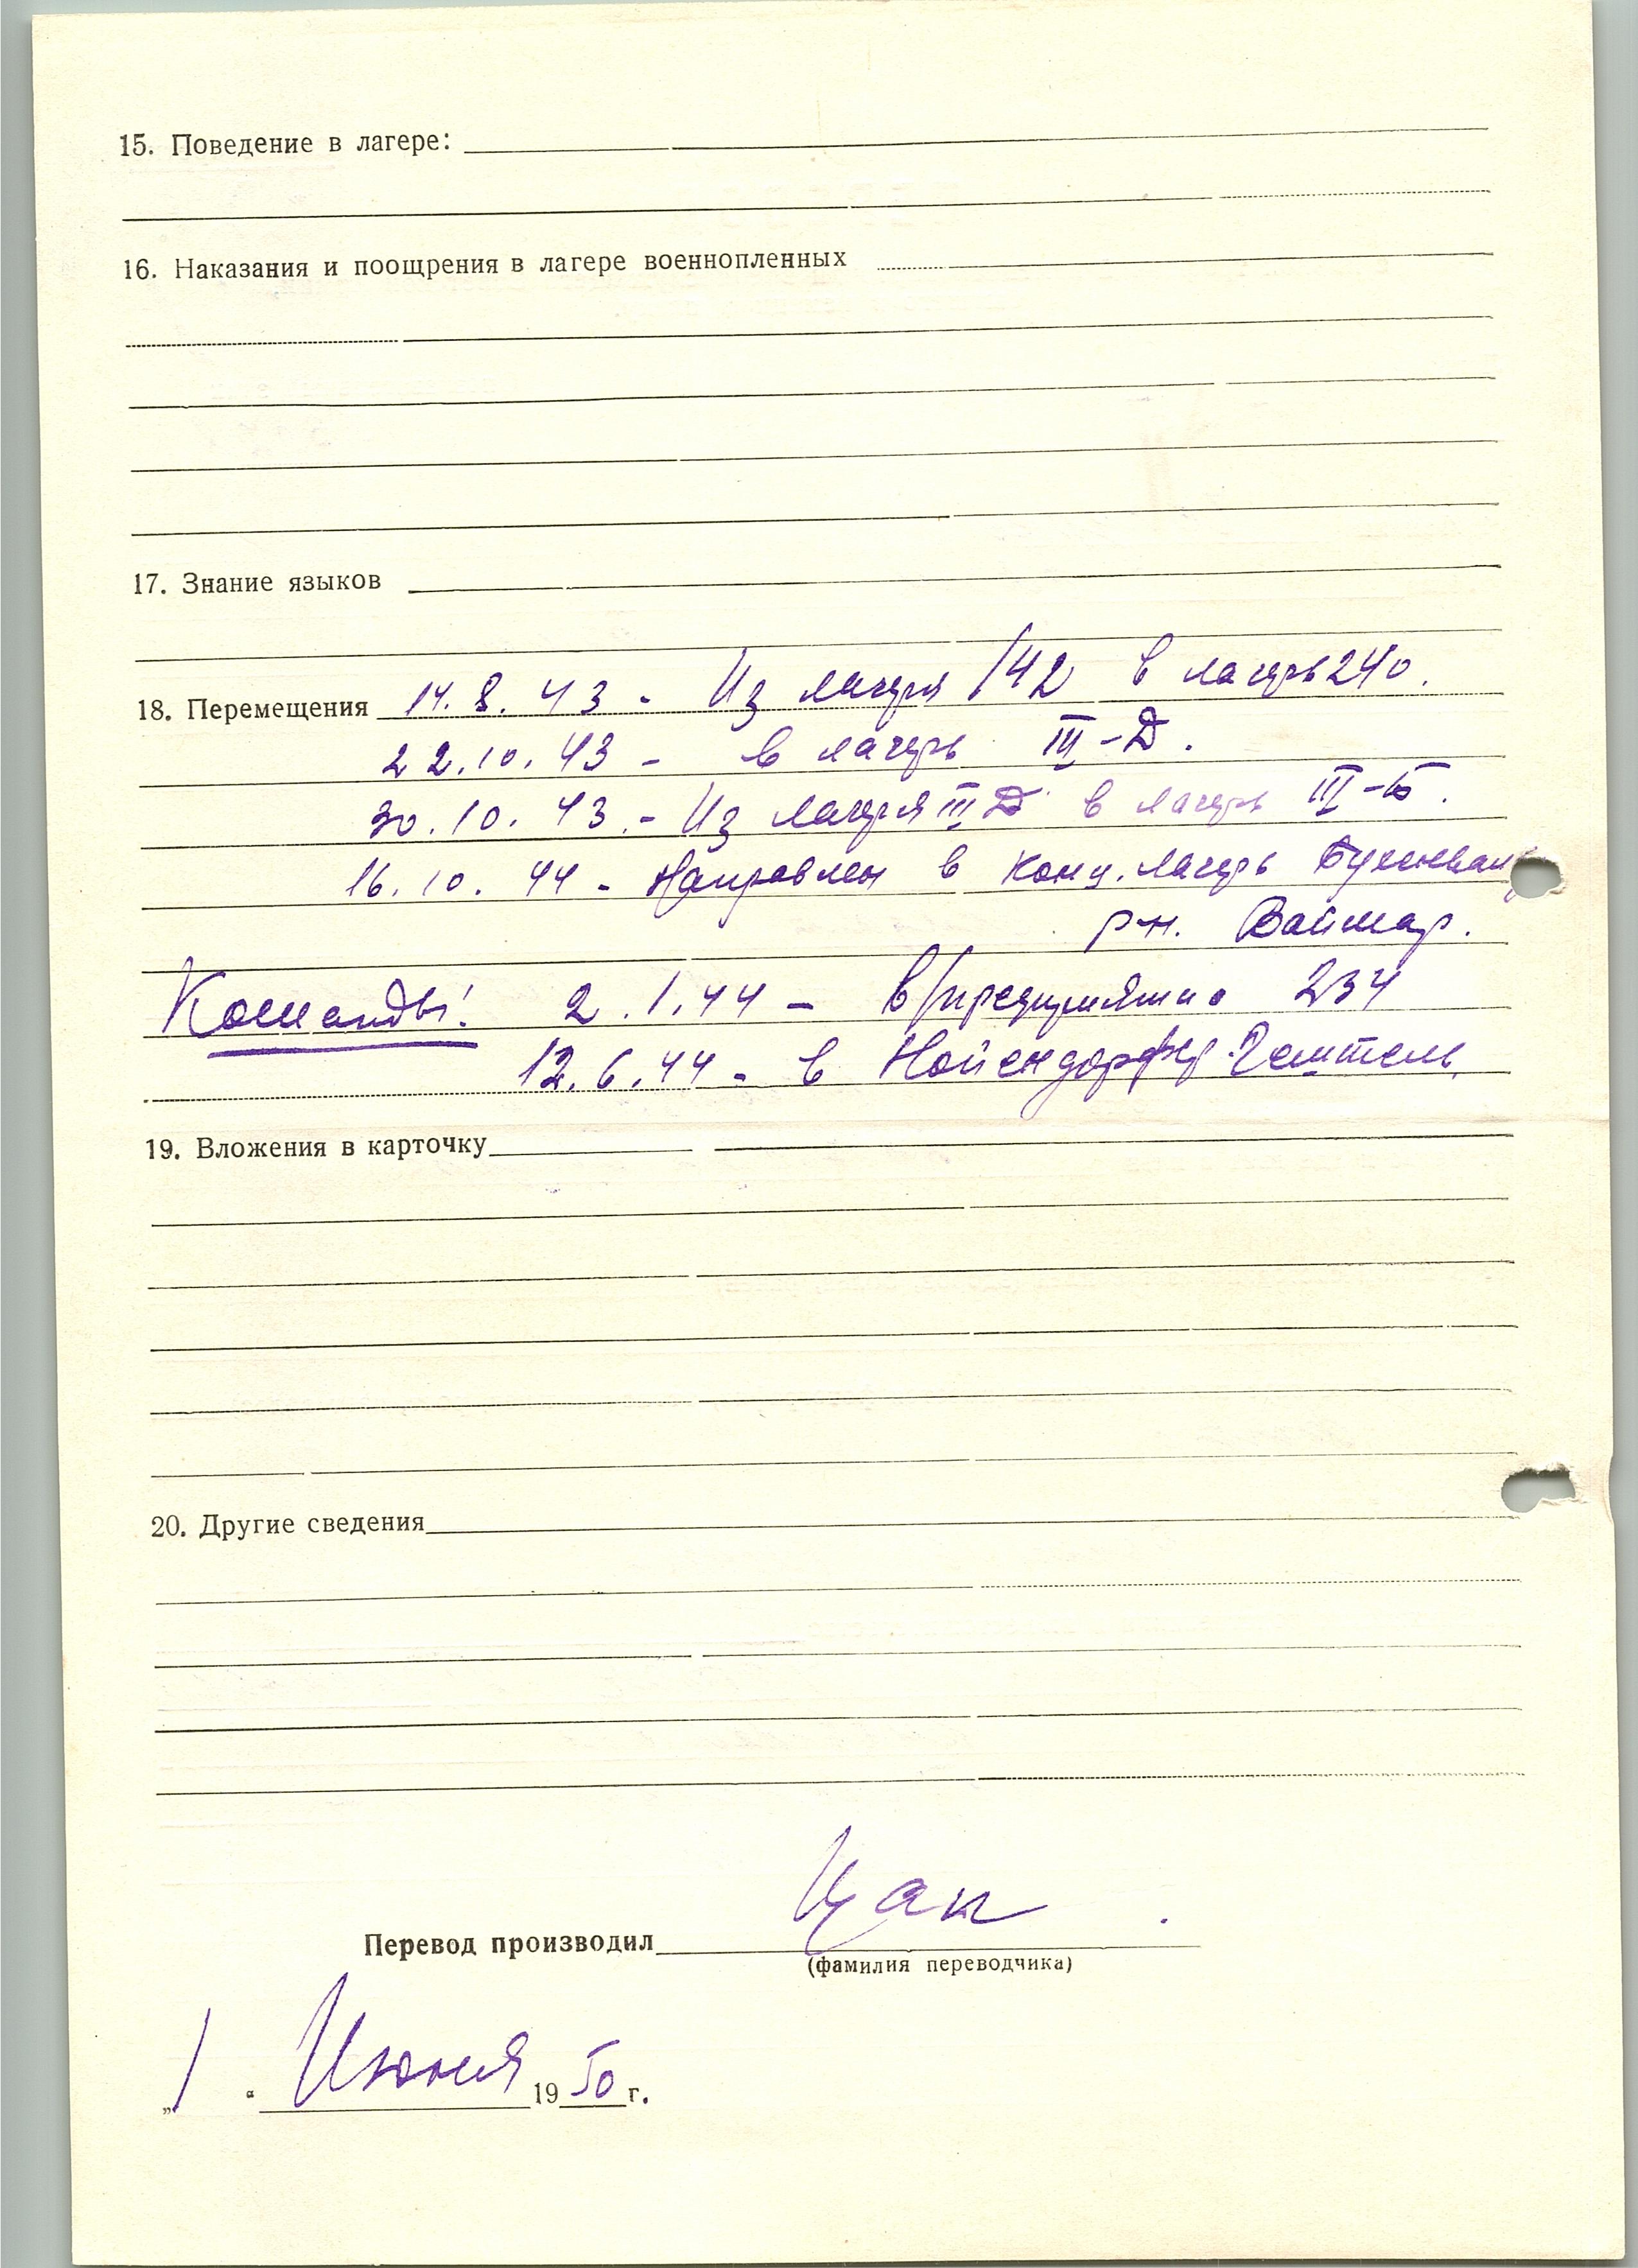 15. Поведение в лагере:
16. Наказания и поощрения в лагере военнопленных
17. Знание языков
18. Перемещения 14.8.43 - Из лагеря 142 в лагерь 240.
22.10.43 - в лагерь III-Д.
30.10.43.- Из лагеря III Д в лагерь III-Б.
16.10.44 - Направлен в конц.лагерь Бухенвальд
р-н. Ваймар.
Команды: 2.1.44 - в/предприятие 234
12.6.44 - в
19. Вложения в карточку
20. Другие сведения
Перевод производил Цак
(фамилия переводчика)
„1“ Июня 1950 г.